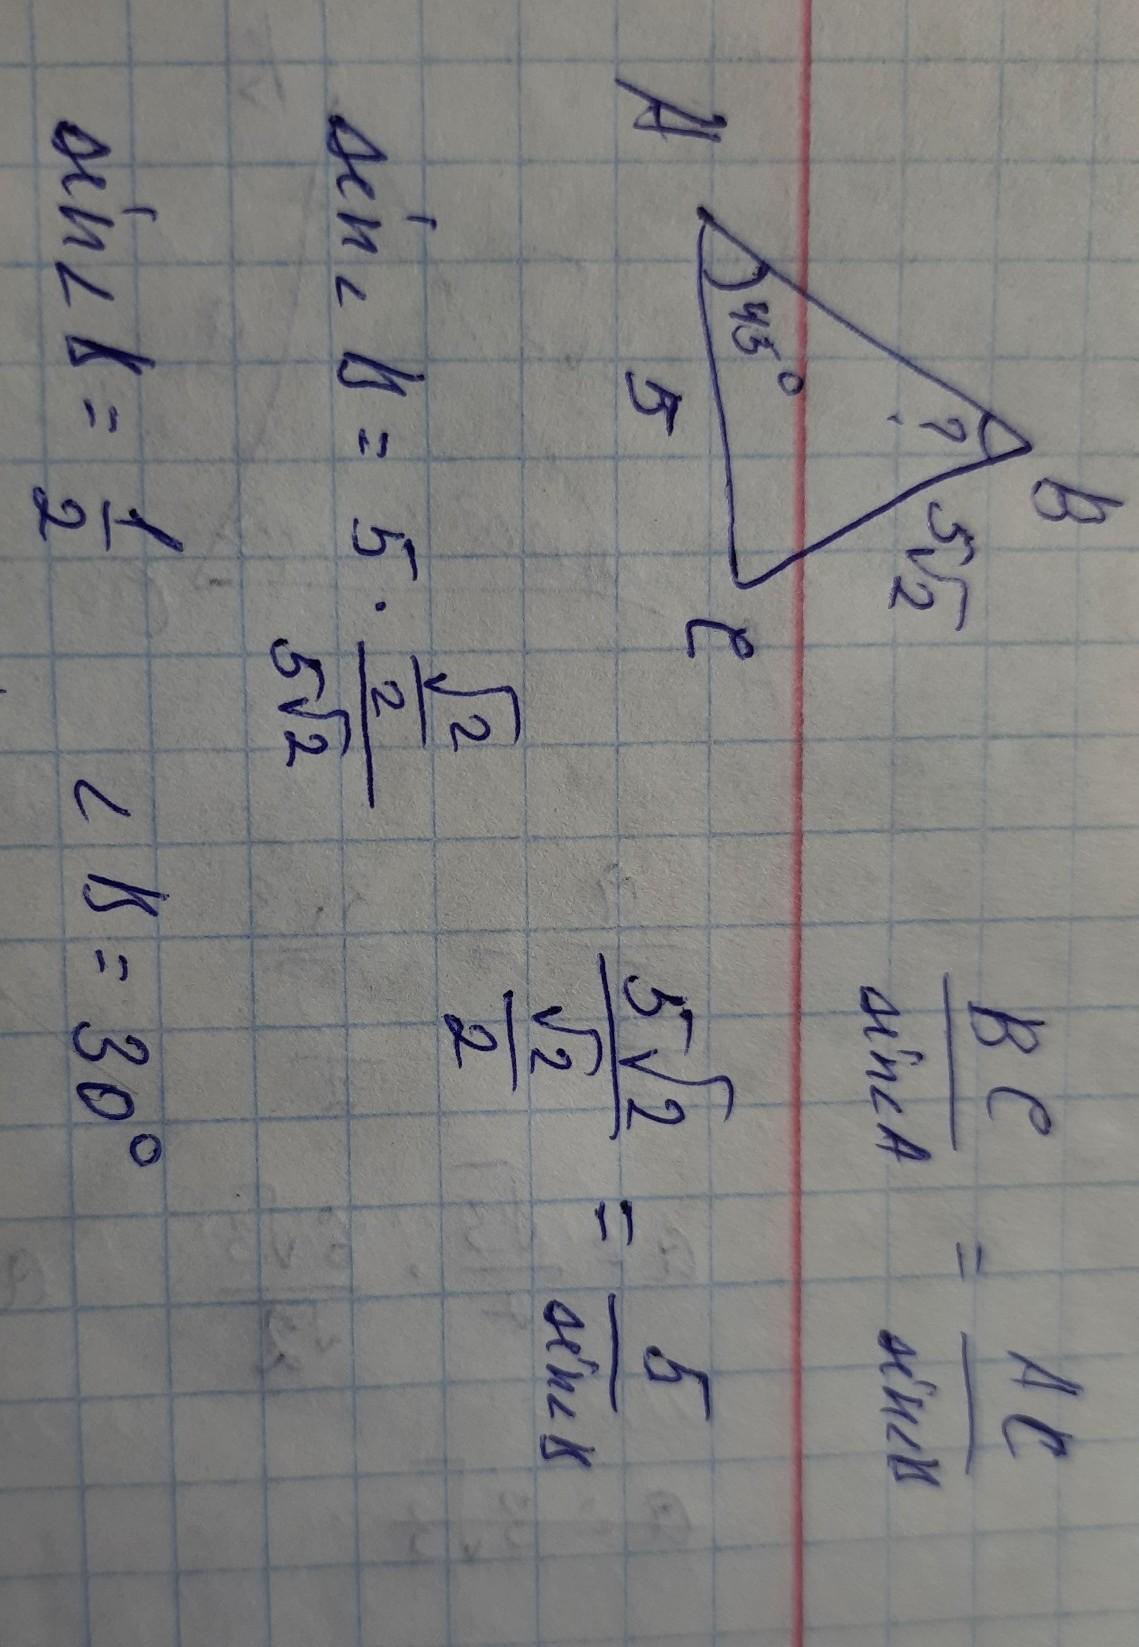 B
A 45° ? 5√2
5 C
BC/sin∠A = AC/sin∠B
5√2/(√2/2) = 5/sin∠B
sin∠B = 5 · (√2/2)/(5√2)
sin∠B = 1/2 ∠B = 30°